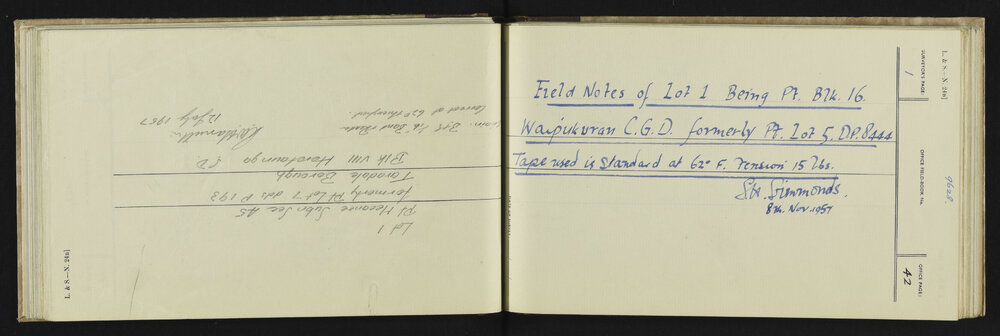 Lot 1
Pt Meeanee Subn Sec 45
formerly Pt Lot 7 dds P 193
Taradale Borough
Blk VIII Heretaunga S.D
12 July 1957
L. & S.—N. 24a]
Field Notes of Lot 1 Being Pt. Blk. 16.
Waipukurau C.G.D. formerly Pt. Lot 5. DP. 8444
Tape used is Standard at 62° F. Tension 15 lbs.
Simmonds.
8th. Nov. 1957
L. & S.—N. 24a]
SURVEYOR'S PAGE:
1
OFFICE FIELD-BOOK No.
9628
OFFICE PAGE:
42